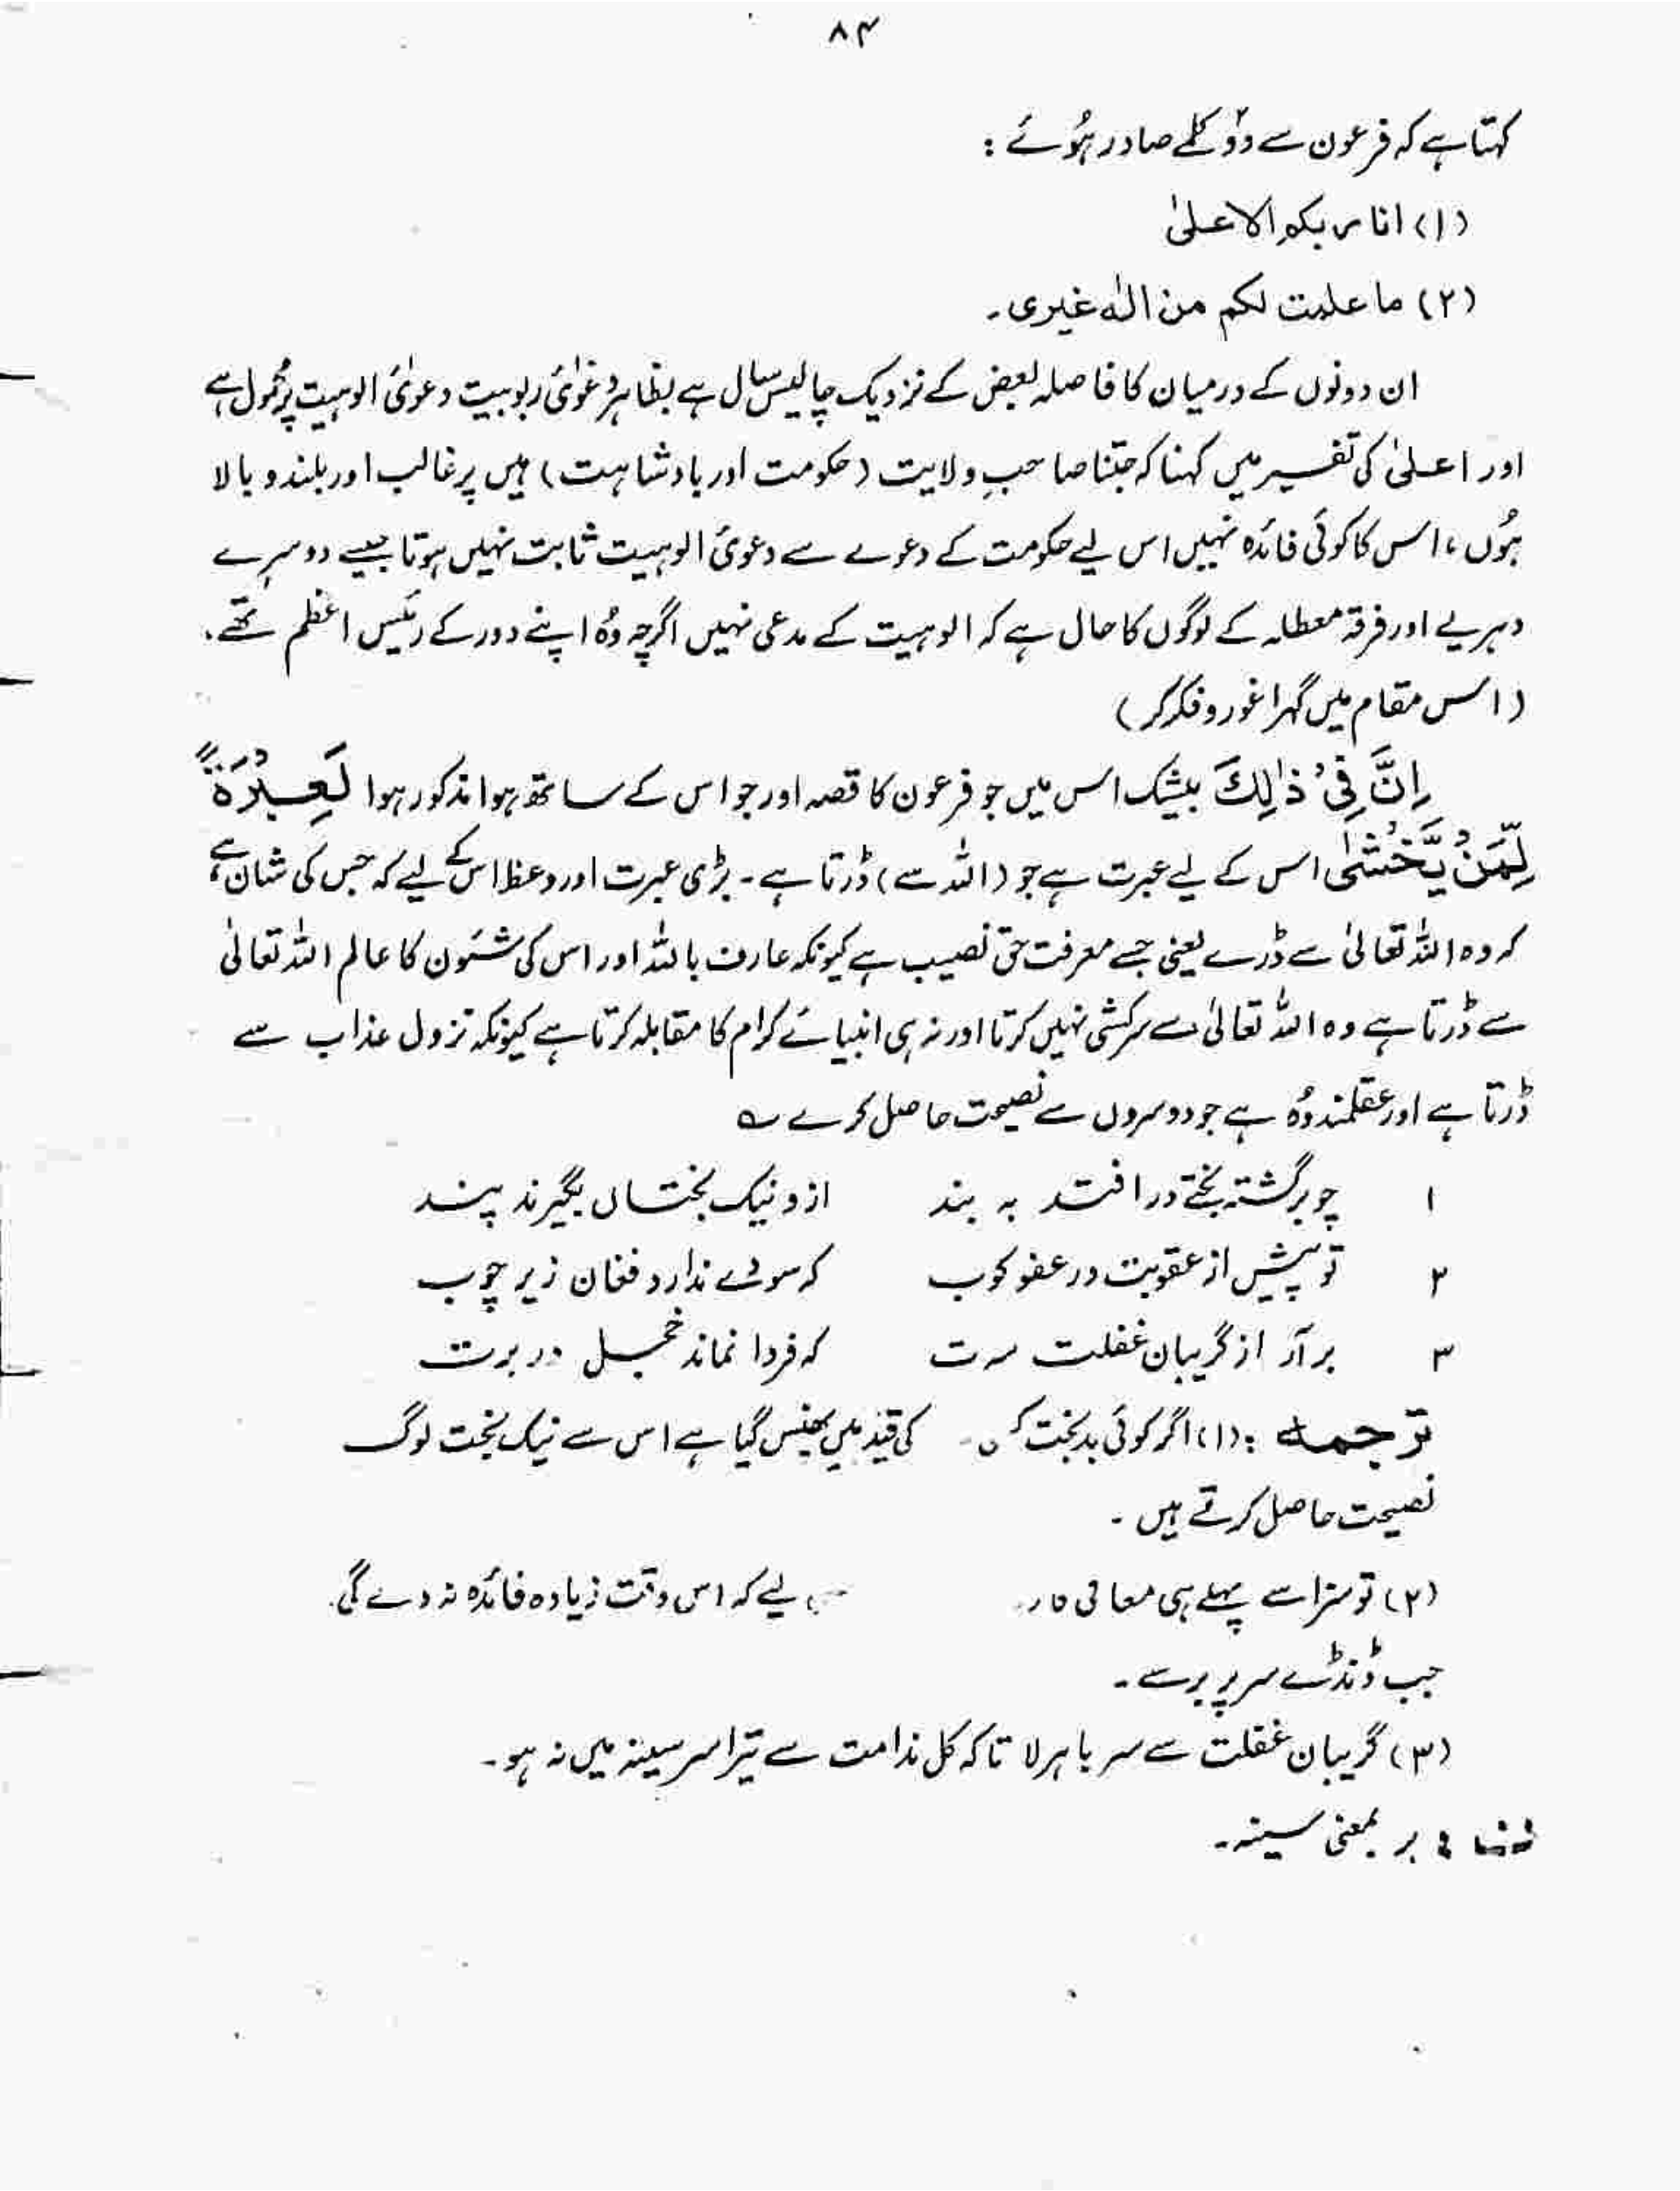 ۸۴
کہتا ہے کہ فرعون سے دو کلمے صادر ہُوئے :
(۱) انا ربکم الاعلیٰ
(۲) ما علمت لکم من الٰہ غیری ۔
ان دونوں کے درمیان کا فاصلہ بعض کے نزدیک چالیس سال ہے بظاہر دعوٰئ ربوبیت دعوٰئ الوہیت پر محمول ہے
اور اعلیٰ کی تفسیر میں کہنا کہ جتنا صاحبِ ولایت (حکومت اور بادشاہت) ہیں پر غالب اور بلند و بالا
ہُوں ، اس کا کوئی فائدہ نہیں اس لیے حکومت کے دعوے سے دعوئ الوہیت ثابت نہیں ہوتا جیسے دوسرے
دہریے اور فرقہ معطلہ کے لوگوں کا حال ہے کہ الوہیت کے مدعی نہیں اگرچہ وُہ اپنے دور کے رئیس اعظم تھے .
(اس مقام میں گہرا غور و فکر کر)
اِنَّ فِیْ ذٰلِکَ بیشک اس میں جو فرعون کا قصہ اور جو اس کے ساتھ ہوا مذکور ہوا لَعِبْرَۃً
لِّمَنْ یَّخْشٰی اس کے لیے عبرت ہے جو (اللہ سے) ڈرتا ہے ۔ بڑی عبرت اور وعظ اس کے لیے کہ جس کی شان ہے
کہ وہ اللہ تعالیٰ سے ڈرے یعنی جسے معرفت حق نصیب ہے کیونکہ عارف باللہ اور اس کی شئون کا عالم اللہ تعالیٰ
سے ڈرتا ہے وہ اللہ تعالیٰ سے سرکشی نہیں کرتا اور نہ ہی انبیائے کرام کا مقابلہ کرتا ہے کیونکہ نزول عذاب سے
ڈرتا ہے اور عقلمند وُہ ہے جو دوسروں سے نصیحت حاصل کرے ؎
۱ چو برگشتہ بختے در افتد بہ بند ازو نیک بختاں بگیرند پند
۲ تو پیش از عقوبت در عفو کوب کہ سودے ندارد فغان زیر چوب
۳ بر آر از گریبان غفلت سرت کہ فردا نماند خجل در برت
ترجمہ : (۱) اگر کوئی بدبخت کی قید میں پھنس گیا ہے اس سے نیک بخت لوگ
نصیحت حاصل کرتے ہیں ۔
(۲) تو سزا سے پہلے ہی معافی لیے کہ اس وقت زیادہ فائدہ نہ دے گی .
جب ڈنڈے سر پر برسے ۔
(۳) گریبان غفلت سے سر باہر لا تاکہ کل ندامت سے تیرا سر سینہ میں نہ ہو ۔
: بر بمعنی سینہ ۔